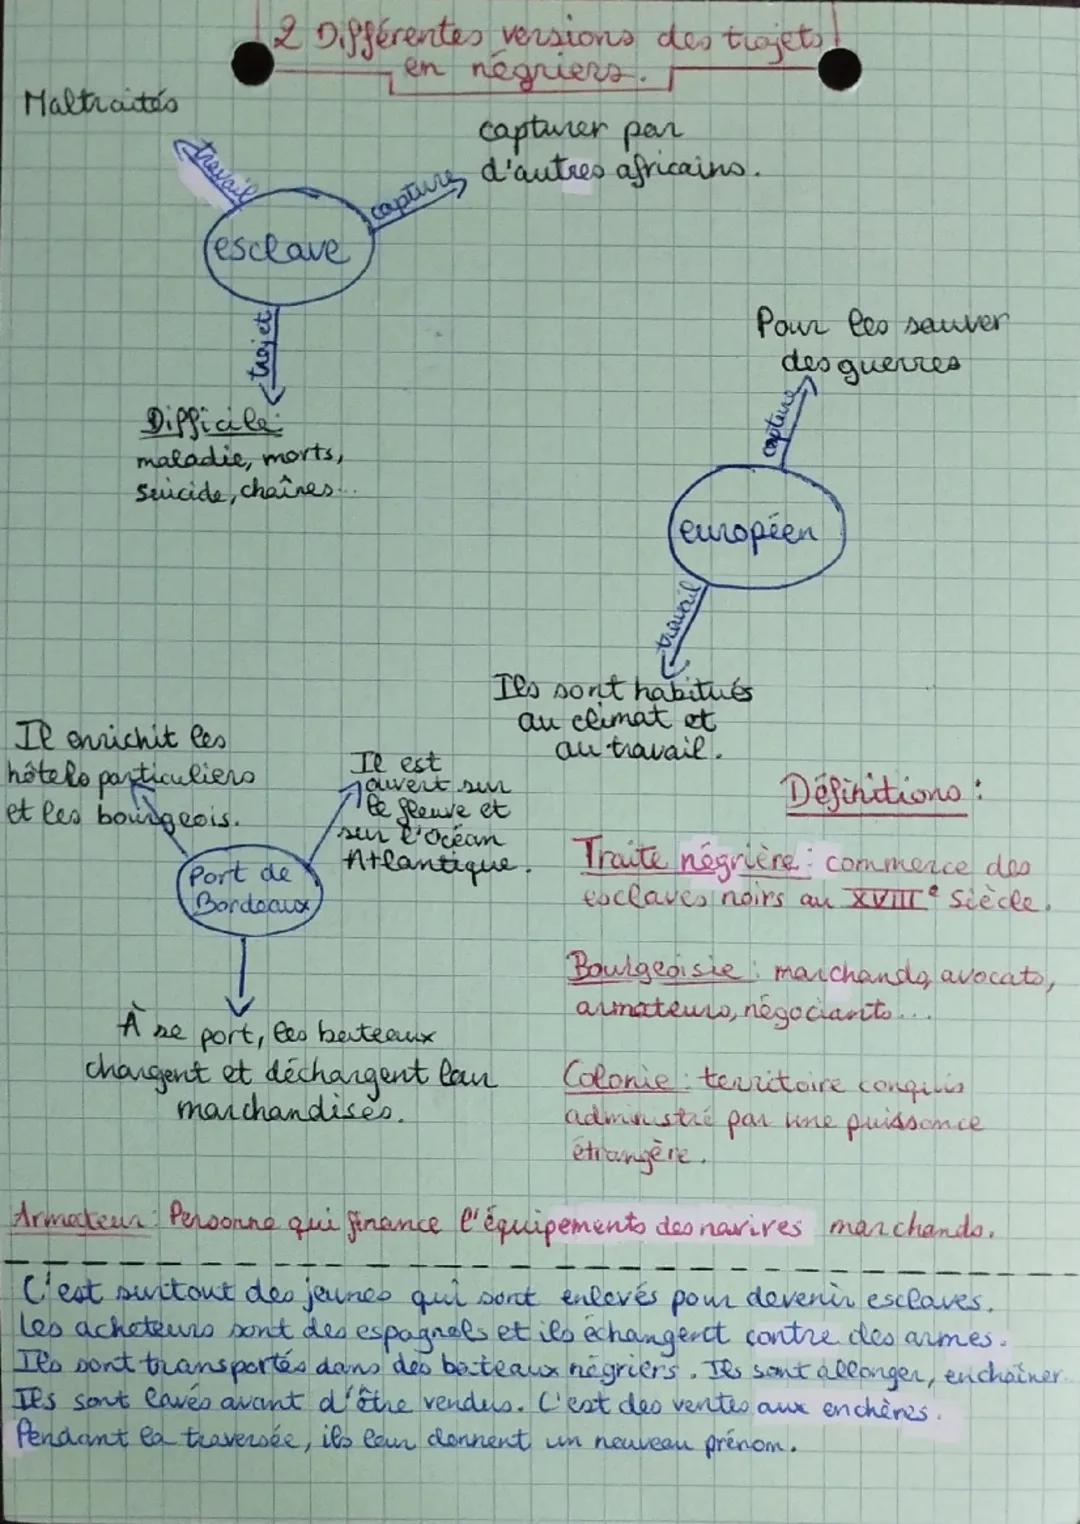 2 Différentes versions des trajets
en négriers.
Maltraités
travail
capturer par
d'autres africains.
capture
esclave
trajet
Difficile:
maladie, morts,
suicide, chaînes...
Pour les sauver
des guerres
capture
européen
travail
Ils sont habitués
au climat et
au travail.
Il enrichit les
hôtels particuliers
et les bourgeois.
Il est
ouvert sur
le fleuve et
sur l'Océan
Atlantique.
Port de
Bordeaux
À se port, les bateaux
chargent et déchargent leur
marchandises.
Définitions :
Traite négrière : commerce des
esclaves noirs au XVIIIe siècle.
Bourgeoisie : marchands, avocats,
armateurs, négociants...
Colonie : territoire conquis
administré par une puissance
étrangère.
Armateur : Personne qui finance l'équipements des navires marchands.
C'est surtout des jeunes qui sont enlevés pour devenir esclaves.
Les acheteurs sont des espagnols et ils échangent contre des armes.
Ils sont transportés dans des bateaux négriers. Ils sont allonger, enchaîner.
Ils sont lavés avant d'être vendus. C'est des ventes aux enchères.
Pendant la traversée, ils leur donnent un nouveau prénom.